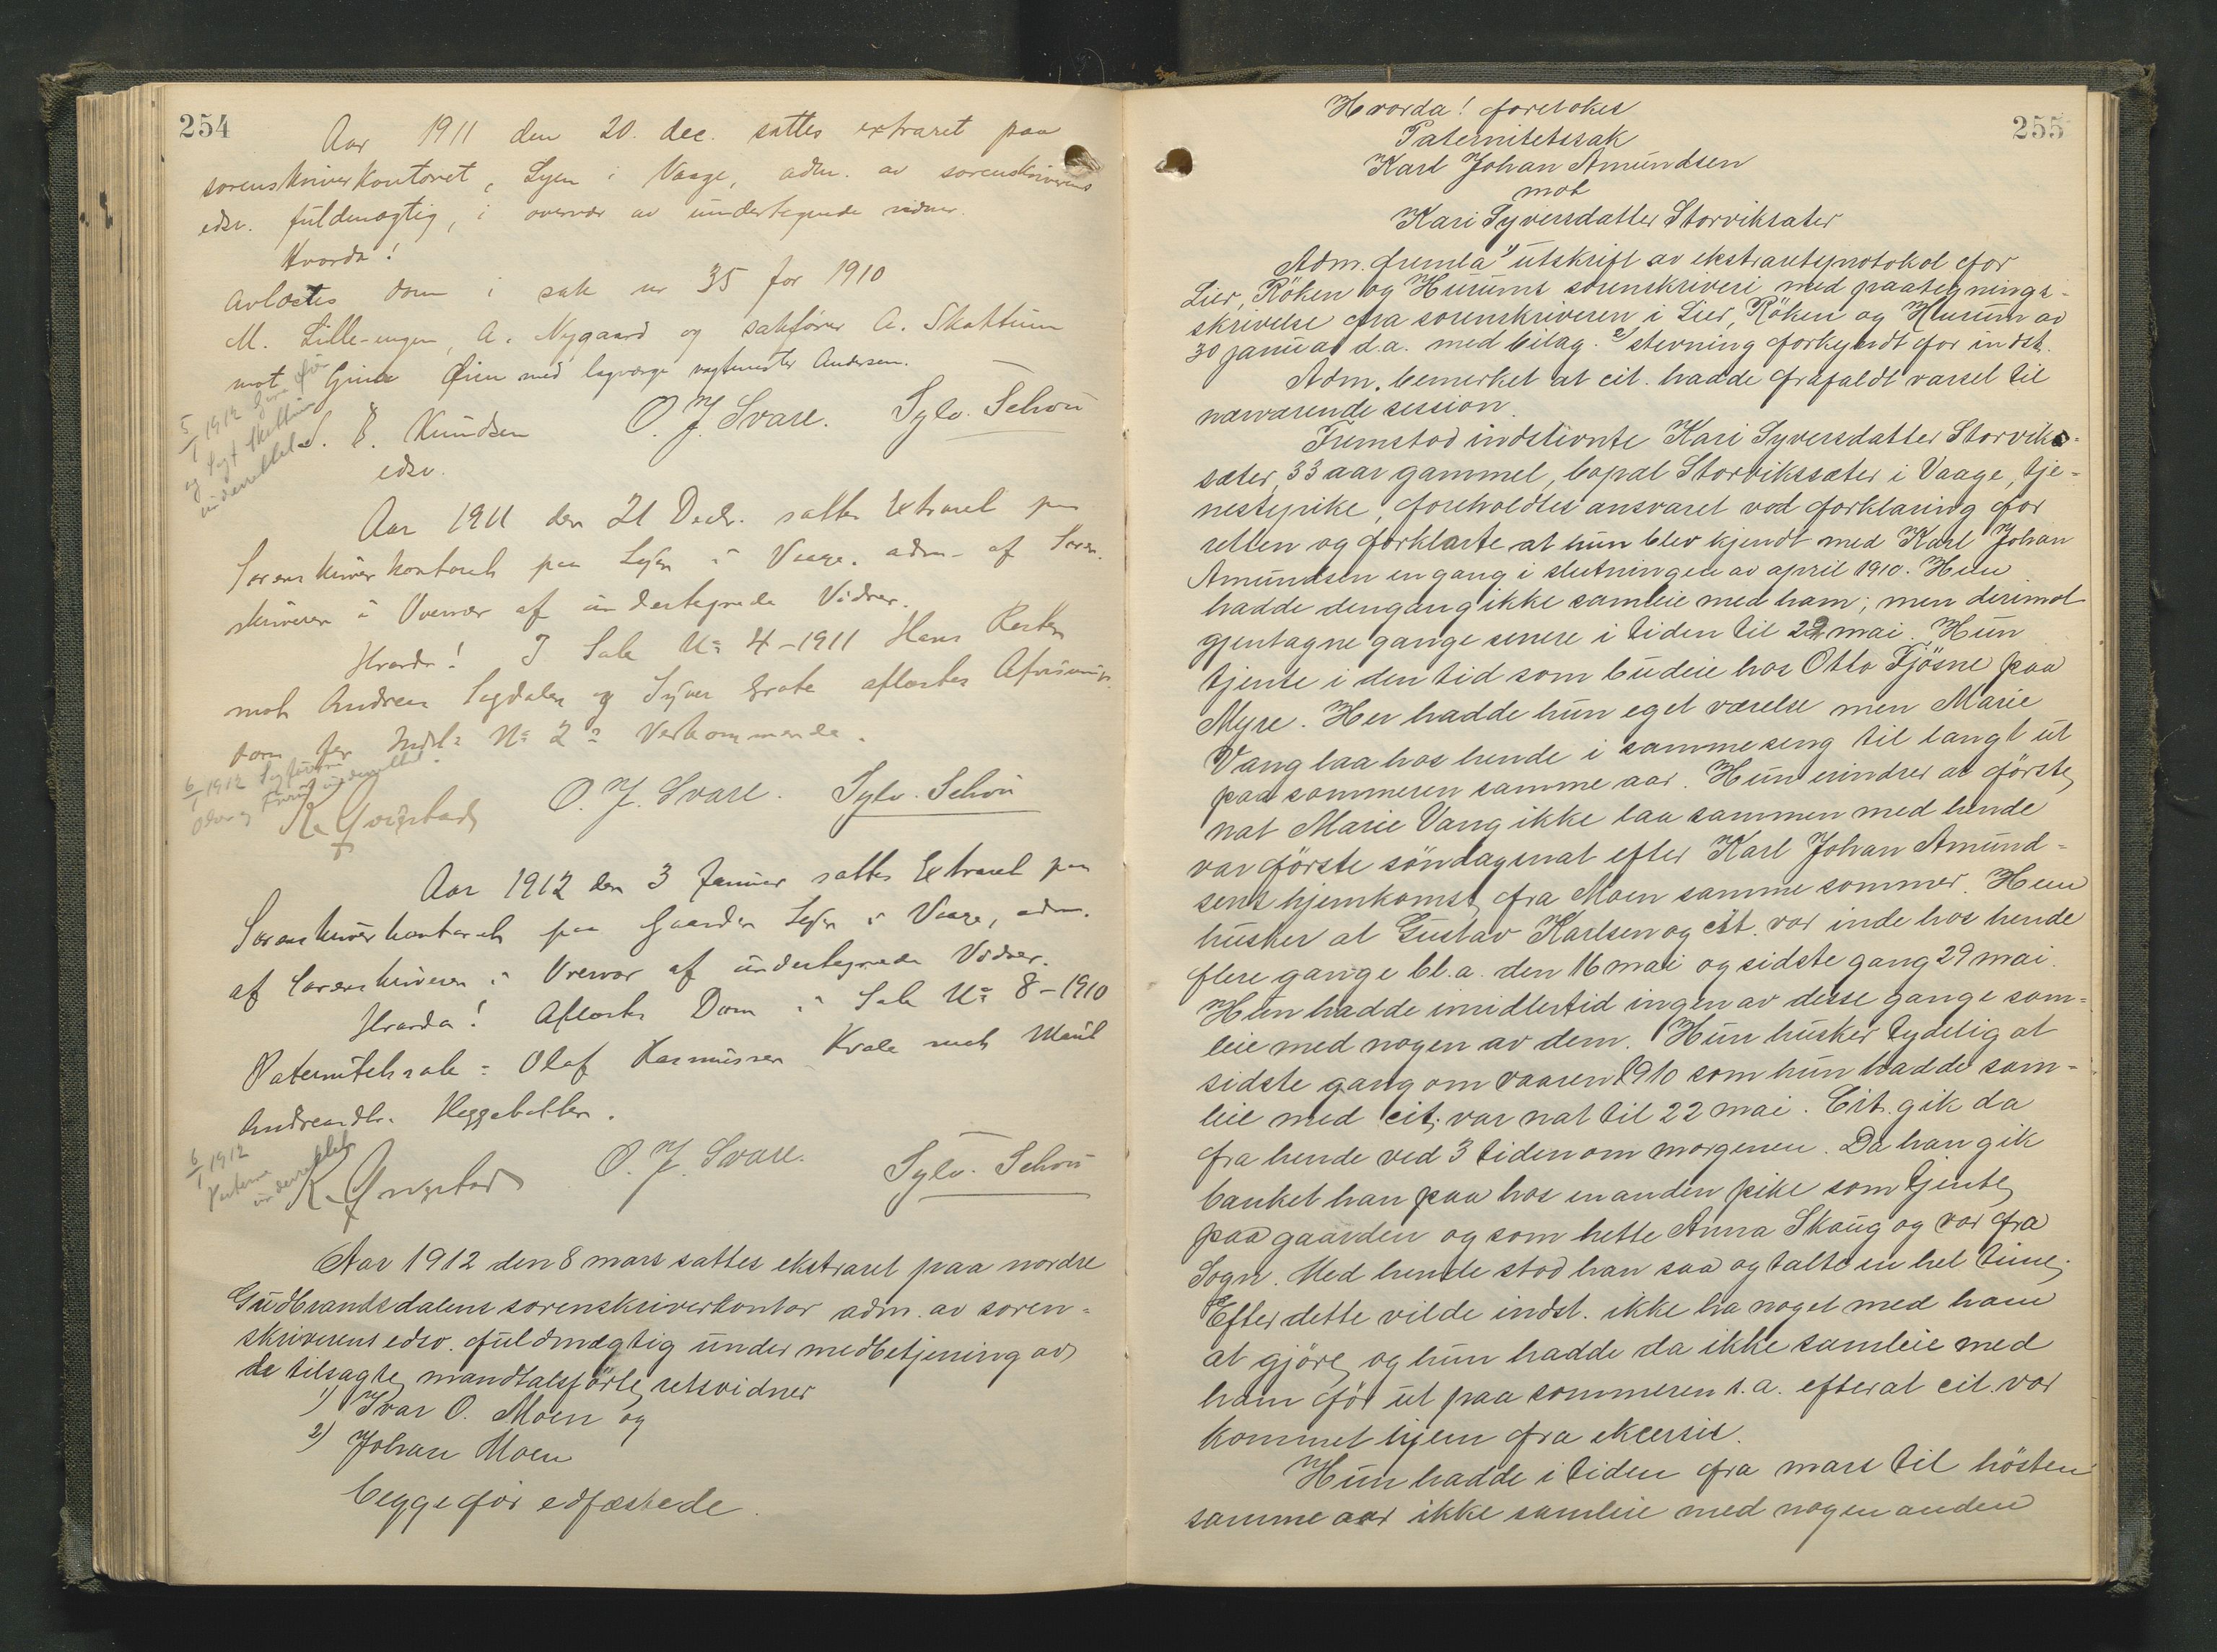 254
Aar 1911 den 20. dec. sattes extraret paa
sorenskriverkontoret, Syen i Vaage, adm. av sorenskriverens
edsv. fuldmægtig, i overvær av undertegnede vidner.
Hvorda!
Avlæstes dom i sak nr 35 for 1910
M. Lille-engen, A. Nygaard og sakfører A. Skattum
mot Gina Øien med lagværge vagtmester Andersen.
5/1 1912
og Sagf. Skattum
underrettet
S. E. Knudsen O. J. Svare. Sylv. Schou
edsv.
Aar 1911 den 21 Decbr. sattes Extraret paa
Sorenskriverkontoret paa Syen i Vaage. adm. af Soren-
skriveren i Overvær af undertegnede Vidner.
Hvorda! I Sak No 4-1911 Hans
mot Andreas og Syver aflæstes Afvisnings
dom for Indst. No 2s Vedkommende.
6/1 1912
O. J. Svare. Sylv. Schou
Aar 1912 den 3 Januar sattes Extraret paa
Sorenskriverkontoret paa Gaarden Syen i Vaage, adm.
af Sorenskriveren i Overvær af undertegnede Vidner.
Hvorda! Aflæstes Dom i Sak No 8-1910
Paternitetssak: Olaf Rasmussen Kvale mot Marit
Andreasdtr. Heggebotten.
6/1 1912
Parterne
underrettet
O. J. Svare. Sylv. Schou
Aar 1912 den 8 mars sattes ekstraret paa nordre
Gudbrandsdalens sorenskriverkontor adm. av soren-
skriverens edsv. fuldmægtig under medbetjening av
de tilsagte, mandtalsførte retsvidner
1) Ivar O. Moen og
2) Johan Moen
begge før edfæstede.
255
Hvorda! foretokes
Paternitetssak
Karl Johan Amundsen
mot
Kari Syversdatter Storviksæter
Adm. fremla 1) utskrift av ekstraretsprotokol for
Lier, Röken og Hurums sorenskriveri med paategnings-
skrivelse fra sorenskriveren i Lier, Röken og Hurum av
30 januar d.a. med bilag. 2) stevning forkyndt for indst.
Adm. bemerket at cit. hadde frafaldt varsel til
nærværende session.
Fremstod indstevnte Kari Syversdatter Storviks-
sæter, 33 aar gammel, bopæl Storvikssæter i Vaage, tje-
nestepike, foreholdtes ansvaret ved forklaring for
retten og forklarte at hun blev kjendt med Karl Johan
Amundsen en gang i slutningen av april 1910. Hun
hadde dengang ikke samleie med ham; men derimot
gjentagne gange senere i tiden til 22 mai. Hun
tjente i den tid som budeie hos Otto Fjösne paa
Myre. Her hadde hun eget værelse men Marie
Vang laa hos hende i samme seng til langt ut
paa sommeren samme aar. Hun erindrer at förste
nat Marie Vang ikke laa sammen med hende
var förste söndagsnat efter Karl Johan Amund-
sens hjemkomst fra Moen samme sommer. Hun
husker at Gustav Karlsen og cit. var inde hos hende
flere gange bl.a. den 16 mai og sidste gang 29 mai.
Hun hadde imidlertid ingen av disse gange sam-
leie med nogen av dem. Hun husker tydelig at
sidste gang om vaaren 1910 som hun hadde sam-
leie med cit. var nat til 22 mai. Cit. gik da
fra hende ved 3 tiden om morgenen. Da han gik
banket han paa hos en anden pike som tjente
paa gaarden og som hette Anna Skaug og var fra
Sogn. Med hende stod han saa og talte en hel time.
Efter dette vilde indst. ikke ha noget med ham
at gjöre, og hun hadde da ikke samleie med
ham för ut paa sommeren s.a. efterat cit. var
kommet hjem fra ekcersis.
Hun hadde i tiden fra mars til hösten
samme aar ikke samleie med nogen anden